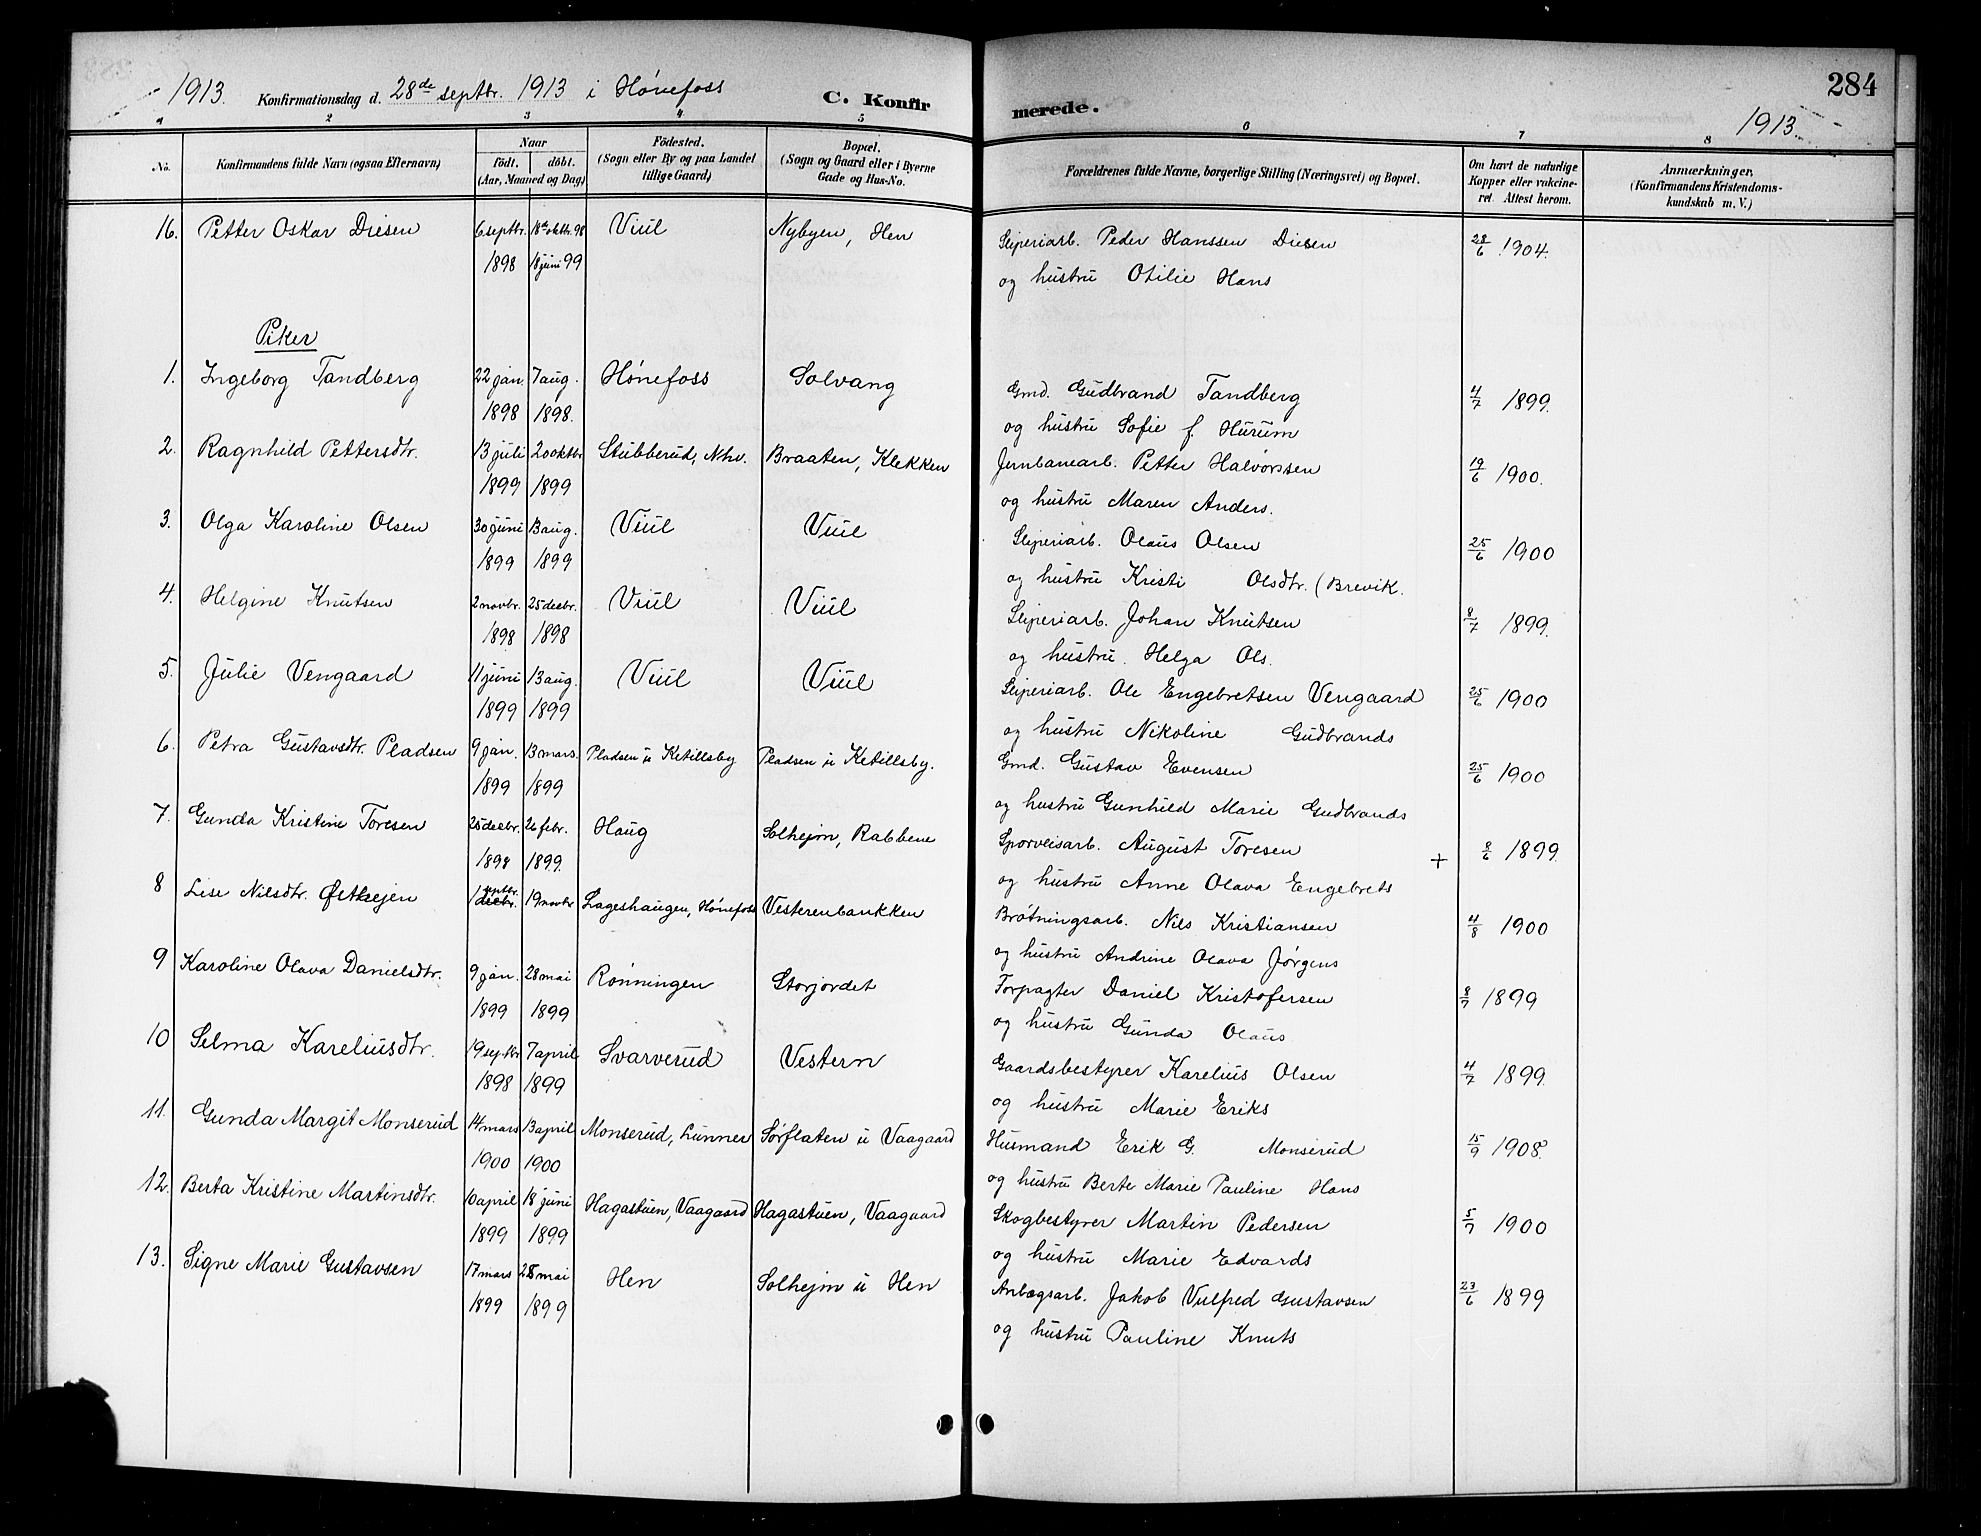 1913. Konfirmationsdag d. 28de septbr. 1913 i Hónefoss C. Konfirmerede. 284
1913.
1 2 3 4 5 6 7 8
No. Konfirmandens fulde Navn (ogsaa Efternavn)
Naar
födt. döbt.
(Aar, Maaned og Dag)
Födested.
(Sogn eller By og paa Landet
tillige Gaard)
Bopæl.
(Sogn og Gaard eller i Byerne
Gade og Hus-No.
Forældrenes fulde Navne, borgerlige Stilling (Næringsvei) og Bopæl.
Om havt de naturlige
Kopper eller vakcine-
ret. Attest herom.
Anmærkninger.
(Konfirmandens Kristendoms-
kundskab m. V.)
16. Petter Oskar Diesen 6 septbr. 18de oktbr. 98 Viul Nybyen, Hen Sliperiarb. Peder Hanssen Diesen 28/6 1904.
1898 18 juni 99 og hustru Otilie Hans
Piker
1. Ingeborg Tandberg 22 jan. 7 aug. Hónefoss Solvang Gmd. Gudbrand Tandberg 4/7 1899.
1898 1898. og hustru Sofie f. Hurum
2. Ragnhild Pettersdtr. 13 juli 20 oktbr. Stubberud, Nhv. Braaten, Klekken Jernbanearb. Petter Halvorssen 19/6 1900.
1899 1899 og hustru Maren Anders.
3. Olga Karoline Olsen 30 juni 13 aug. Viul Viul Sliperiarb. Olaus Olsen 25/6 1900
1899 1899 og hustru Kristi Olsdtr. (Brevik.
4. Helgine Knutsen 2 novbr. 25 decbr. Viul Viul Sliperiarb. Johan Knutsen 8/7 1899.
1898 1898 og hustru. Helga Ols.
5. Julie Vengaard 11 juni 13 aug. Viul Viul Sliperiarb. Ole Engebretsen Vengaard 25/6 1900
1899 1899 og hustru Nikoline Gudbrands
6. Petra Gustavsdtr. Pladsen 9 jan. 13 mars. Pladsen u Ketillsby Pladsen u Ketillsby. Gmd. Gustav Evensen 25/6 1900
1899 1899 og hustru Gunhild Marie Gudbrands
7. Gunda Kristine Toresen 25 decbr. 26 febr. Haug Solhejm, Rabbene Sporveisarb. August Toresen + 8/6 1899.
1898 1899. og hustru Anne Olava Engebrets
8 Lise Nilsdtr. Østhejen 1 septbr. decbr. 19 novbr Lageshaugen, Hónefoss Vesterenbankken Brótningsarb. Nils Kristiansen 4/8 1900
og hustru Andrine Olava Jórgens
9 Karoline Olava Danielsdtr. 9 jan. 28 mai Rónningen Storjordet Forpagter Daniel Kristofersen 8/7 1899
1899 1899 og hustru Gunda Olaus
10 Selma Kareliusdtr. 19 septbr 7 april Svarverud Vestern Gaardsbestyrer Karelius Olsen 4/7 1899.
1898 1899 og hustru Marie Eriks
11. Gunda Margit Monserud 14 mars 13 april Monserud, Lunner Sórflaten u Vaagaard Husmand Erik G. Monserud 15/9 1908.
1900 1900 og hustru Berte Marie Pauline Hans
12. Berta Kristine Martinsdtr. 10 april 18 juni Hagastuen, Vaagaard Hagastuen, Vaagaard Skogbestyrer Martin Pedersen 5/7 1900
1899 1899 og hustru Marie Edvards
13. Signe Marie Gustavsen 17 mars 28 mai Hen Solhejm u Hen Anlægsarb. Jakob Vulfred Gustavsen 23/6 1899
1899 1899 og hustru Pauline Knuts